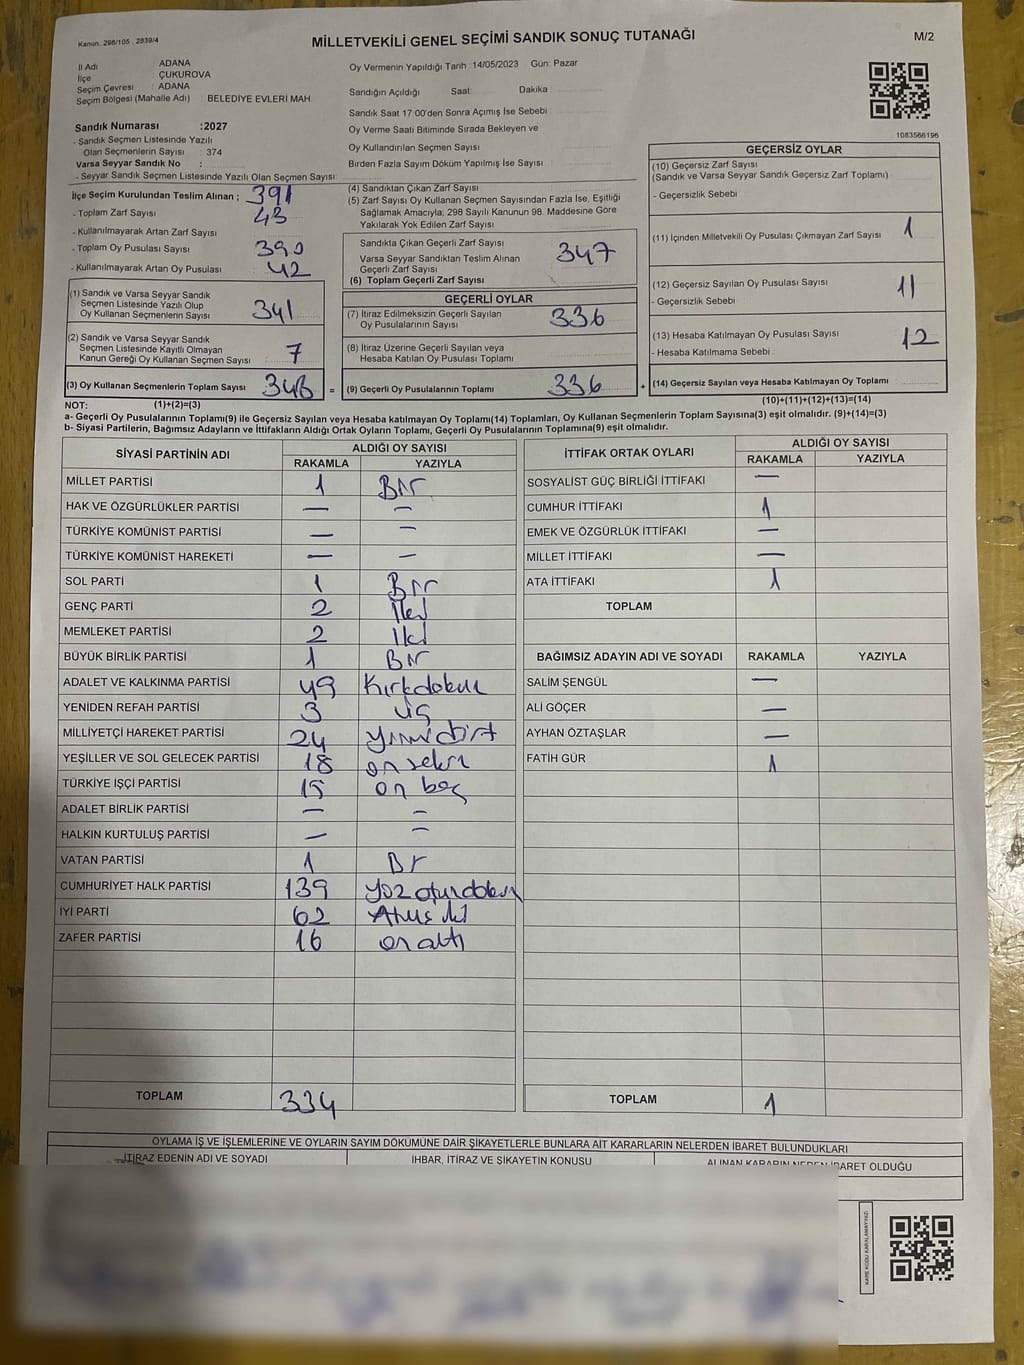 Kanun: 298/105 , 2839/4
MİLLETVEKİLİ GENEL SEÇİMİ SANDIK SONUÇ TUTANAĞI
M/2
İl Adı ADANA
İlçe ÇUKUROVA
Seçim Çevresi : ADANA
Seçim Bölgesi (Mahalle Adı) BELEDİYE EVLERİ MAH
Sandık Numarası :2027
- Sandık Seçmen Listesinde Yazılı
Olan Seçmenlerin Sayısı : 374
Varsa Seyyar Sandık No :
- Seyyar Sandık Seçmen Listesinde Yazılı Olan Seçmen Sayısı
Oy Vermenin Yapıldığı Tarih :14/05/2023 Gün: Pazar
Sandığın Açıldığı Saat: Dakika
Sandık Saat 17:00'den Sonra Açımış İse Sebebi
Oy Verme Saati Bitiminde Sırada Bekleyen ve
Oy Kullandırılan Seçmen Sayısı
Birden Fazla Sayım Döküm Yapılmış İse Sayısı
1083566196
İlçe Seçim Kurulundan Teslim Alınan ;
- Toplam Zarf Sayısı 391
- Kullanılmayarak Artan Zarf Sayısı 43
- Toplam Oy Pusulası Sayısı 390
- Kullanılmayarak Artan Oy Pusulası 42
(1) Sandık ve Varsa Seyyar Sandık
Seçmen Listesinde Yazılı Olup
Oy Kullanan Seçmenlerin Sayısı 341
(2) Sandık ve Varsa Seyyar Sandık
Seçmen Listesinde Kayıtlı Olmayan
Kanun Gereği Oy Kullanan Seçmen Sayısı 7
(3) Oy Kullanan Seçmenlerin Toplam Sayısı 348 =
(1)+(2)=(3)
(4) Sandıktan Çıkan Zarf Sayısı
(5) Zarf Sayısı Oy Kullanan Seçmen Sayısından Fazla İse, Eşitliği
Sağlamak Amacıyla; 298 Sayılı Kanunun 98. Maddesine Göre
Yakılarak Yok Edilen Zarf Sayısı
Sandıkta Çıkan Geçerli Zarf Sayısı 347
Varsa Seyyar Sandıktan Teslim Alınan
Geçerli Zarf Sayısı
(6) Toplam Geçerli Zarf Sayısı
GEÇERLİ OYLAR
(7) İtiraz Edilmeksizin Geçerli Sayılan
Oy Pusulalarının Sayısı 336
(8) İtiraz Üzerine Geçerli Sayılan veya
Hesaba Katılan Oy Pusulası Toplamı
(9) Geçerli Oy Pusulalarının Toplamı 336 +
GEÇERSİZ OYLAR
(10) Geçersiz Zarf Sayısı
(Sandık ve Varsa Seyyar Sandık Geçersiz Zarf Toplamı)
- Geçersizlik Sebebi
(11) İçinden Milletvekili Oy Pusulası Çıkmayan Zarf Sayısı 1
(12) Geçersiz Sayılan Oy Pusulası Sayısı 11
- Geçersizlik Sebebi
(13) Hesaba Katılmayan Oy Pusulası Sayısı 12
- Hesaba Katılmama Sebebi
(14) Geçersiz Sayılan veya Hesaba Katılmayan Oy Toplamı
(10)+(11)+(12)+(13)=(14)
NOT:
a- Geçerli Oy Pusulalarının Toplamı(9) ile Geçersiz Sayılan veya Hesaba katılmayan Oy Toplamı(14) Toplamları, Oy Kullanan Seçmenlerin Toplam Sayısına(3) eşit olmalıdır. (9)+(14)=(3)
b- Siyasi Partilerin, Bağımsız Adayların ve İttifakların Aldığı Ortak Oyların Toplamı, Geçerli Oy Pusulalarının Toplamına(9) eşit olmalıdır.
SİYASİ PARTİNİN ADI ALDIĞI OY SAYISI
RAKAMLA YAZIYLA
MİLLET PARTİSİ 1 Bir
HAK VE ÖZGÜRLÜKLER PARTİSİ — –
TÜRKİYE KOMÜNİST PARTİSİ — –
TÜRKİYE KOMÜNİST HAREKETİ — –
SOL PARTİ 1 Bir
GENÇ PARTİ 2 İki
MEMLEKET PARTİSİ 2 İki
BÜYÜK BİRLİK PARTİSİ 1 Bir
ADALET VE KALKINMA PARTİSİ 49 Kırkdokuz
YENİDEN REFAH PARTİSİ 3 üç
MİLLİYETÇİ HAREKET PARTİSİ 24 yirmidört
YEŞİLLER VE SOL GELECEK PARTİSİ 18 on sekiz
TÜRKİYE İŞÇİ PARTİSİ 15 on beş
ADALET BİRLİK PARTİSİ — –
HALKIN KURTULUŞ PARTİSİ — –
VATAN PARTİSİ 1 Bir
CUMHURİYET HALK PARTİSİ 139 yüz otuz dokuz
İYİ PARTİ 62 Atmış iki
ZAFER PARTİSİ 16 on altı
TOPLAM 334
İTTİFAK ORTAK OYLARI ALDIĞI OY SAYISI
RAKAMLA YAZIYLA
SOSYALİST GÜÇ BİRLİĞİ İTTİFAKI —
CUMHUR İTTİFAKI 1
EMEK VE ÖZGÜRLÜK İTTİFAKI —
MİLLET İTTİFAKI —
ATA İTTİFAKI 1
TOPLAM
BAĞIMSIZ ADAYIN ADI VE SOYADI RAKAMLA YAZIYLA
SALİM ŞENGÜL —
ALİ GÖÇER —
AYHAN ÖZTAŞLAR —
FATİH GÜR 1
TOPLAM 1
OYLAMA İŞ VE İŞLEMLERİNE VE OYLARIN SAYIM DÖKÜMÜNE DAİR ŞİKAYETLERLE BUNLARA AİT KARARLARIN NELERDEN İBARET BULUNDUKLARI
İTİRAZ EDENİN ADI VE SOYADI İHBAR, İTİRAZ VE ŞİKAYETİN KONUSU ALINAN KARARIN NEDEN İBARET OLDUĞU
KARE KODU KARALAMAYINIZ!